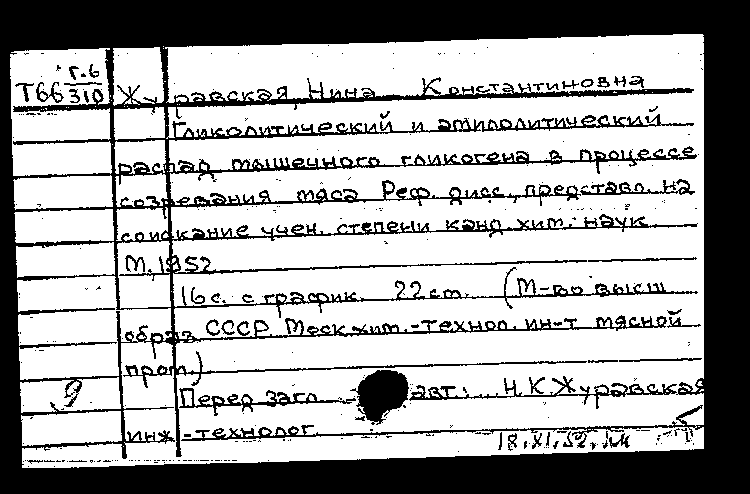 Т66 г.6
310
Журавская, Нина Константиновна
Гликолитический и амилолитический
распад мышечного гликогена в процессе
созревания мяса Реф. дисс., представл. на
соискание учен. степени канд. хим. наук
М., 1952
16 с. с график. 22 см. (М-во высш
образ СССР Моск хим.-технол. ин-т мясной
пром.)
Перед загл. авт.: Н. К. Журавская
инж-технолог
18.XI.52.